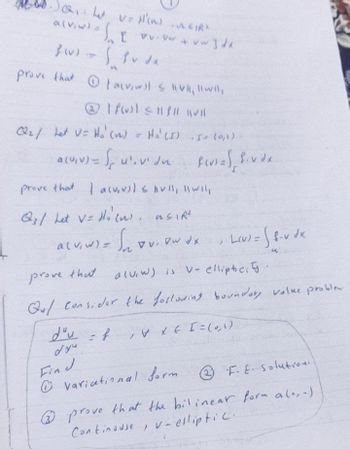 Q1: Let V = H¹(Ω) , Ω ⊆ ℝ²
a(v,w) = ∫_Ω [ ∇v·∇w + vw ] dx
f(v) = ∫_Ω f v dx
prove that ① |a(v,w)| ≤ ||v||₁ ||w||₁
② |f(v)| ≤ ||f|| ||v||
Q2/ Let V = H₀¹(Ω) = H₀¹(I) , I = (0,1)
a(u,v) = ∫_I u'.v' dx f(v) = ∫_I f.v dx
prove that |a(u,v)| ≤ ||v||₁ ||w||₁
Q3/ Let V = H₀¹(Ω) . Ω ≤ ℝ²
a(v,w) = ∫_Ω ∇v. ∇w dx , L(v) = ∫_Ω f.v dx
prove that a(v,w) is V-elliptic
Q4/ Consider the following boundary value problem
d⁴u/dx⁴ = f , ∀ x ∈ I = (0,1)
Find
① variational form ② F.E. solution.
③ prove that the bilinear form a(.,.)
Continouse , V-elliptic.